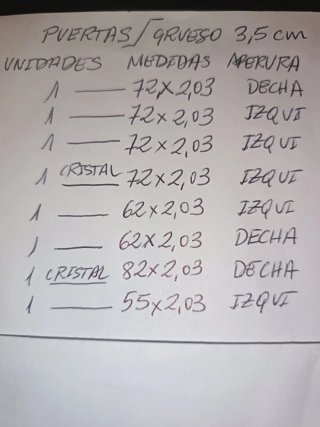 PUERTAS/GRUESO 3,5 cm
UNIDADES MEDIDAS APERURA
1 — 72x2,03 DECHA
1 — 72x2,03 IZQUI
1 — 72x2,03 IZQUI
1 CRISTAL 72x2,03 IZQUI
1 — 62x2,03 IZQUI
1 — 62x2,03 DECHA
1 CRISTAL 82x2,03 DECHA
1 — 55x2,03 IZQUI